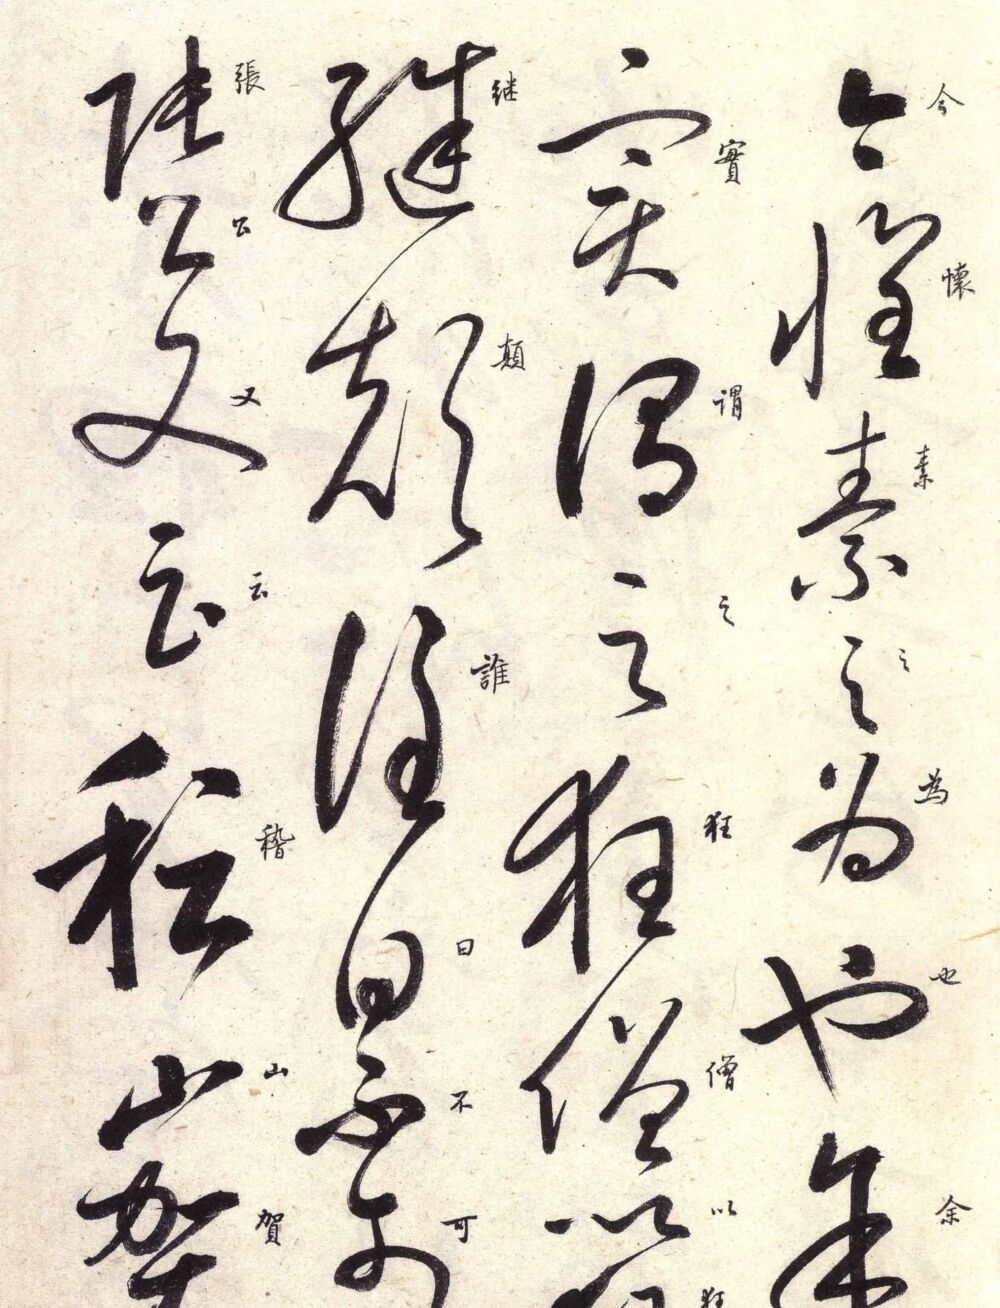 今懷素之為也余
實謂之狂僧以狂
继顛誰曰不可
張公又云稽山賀